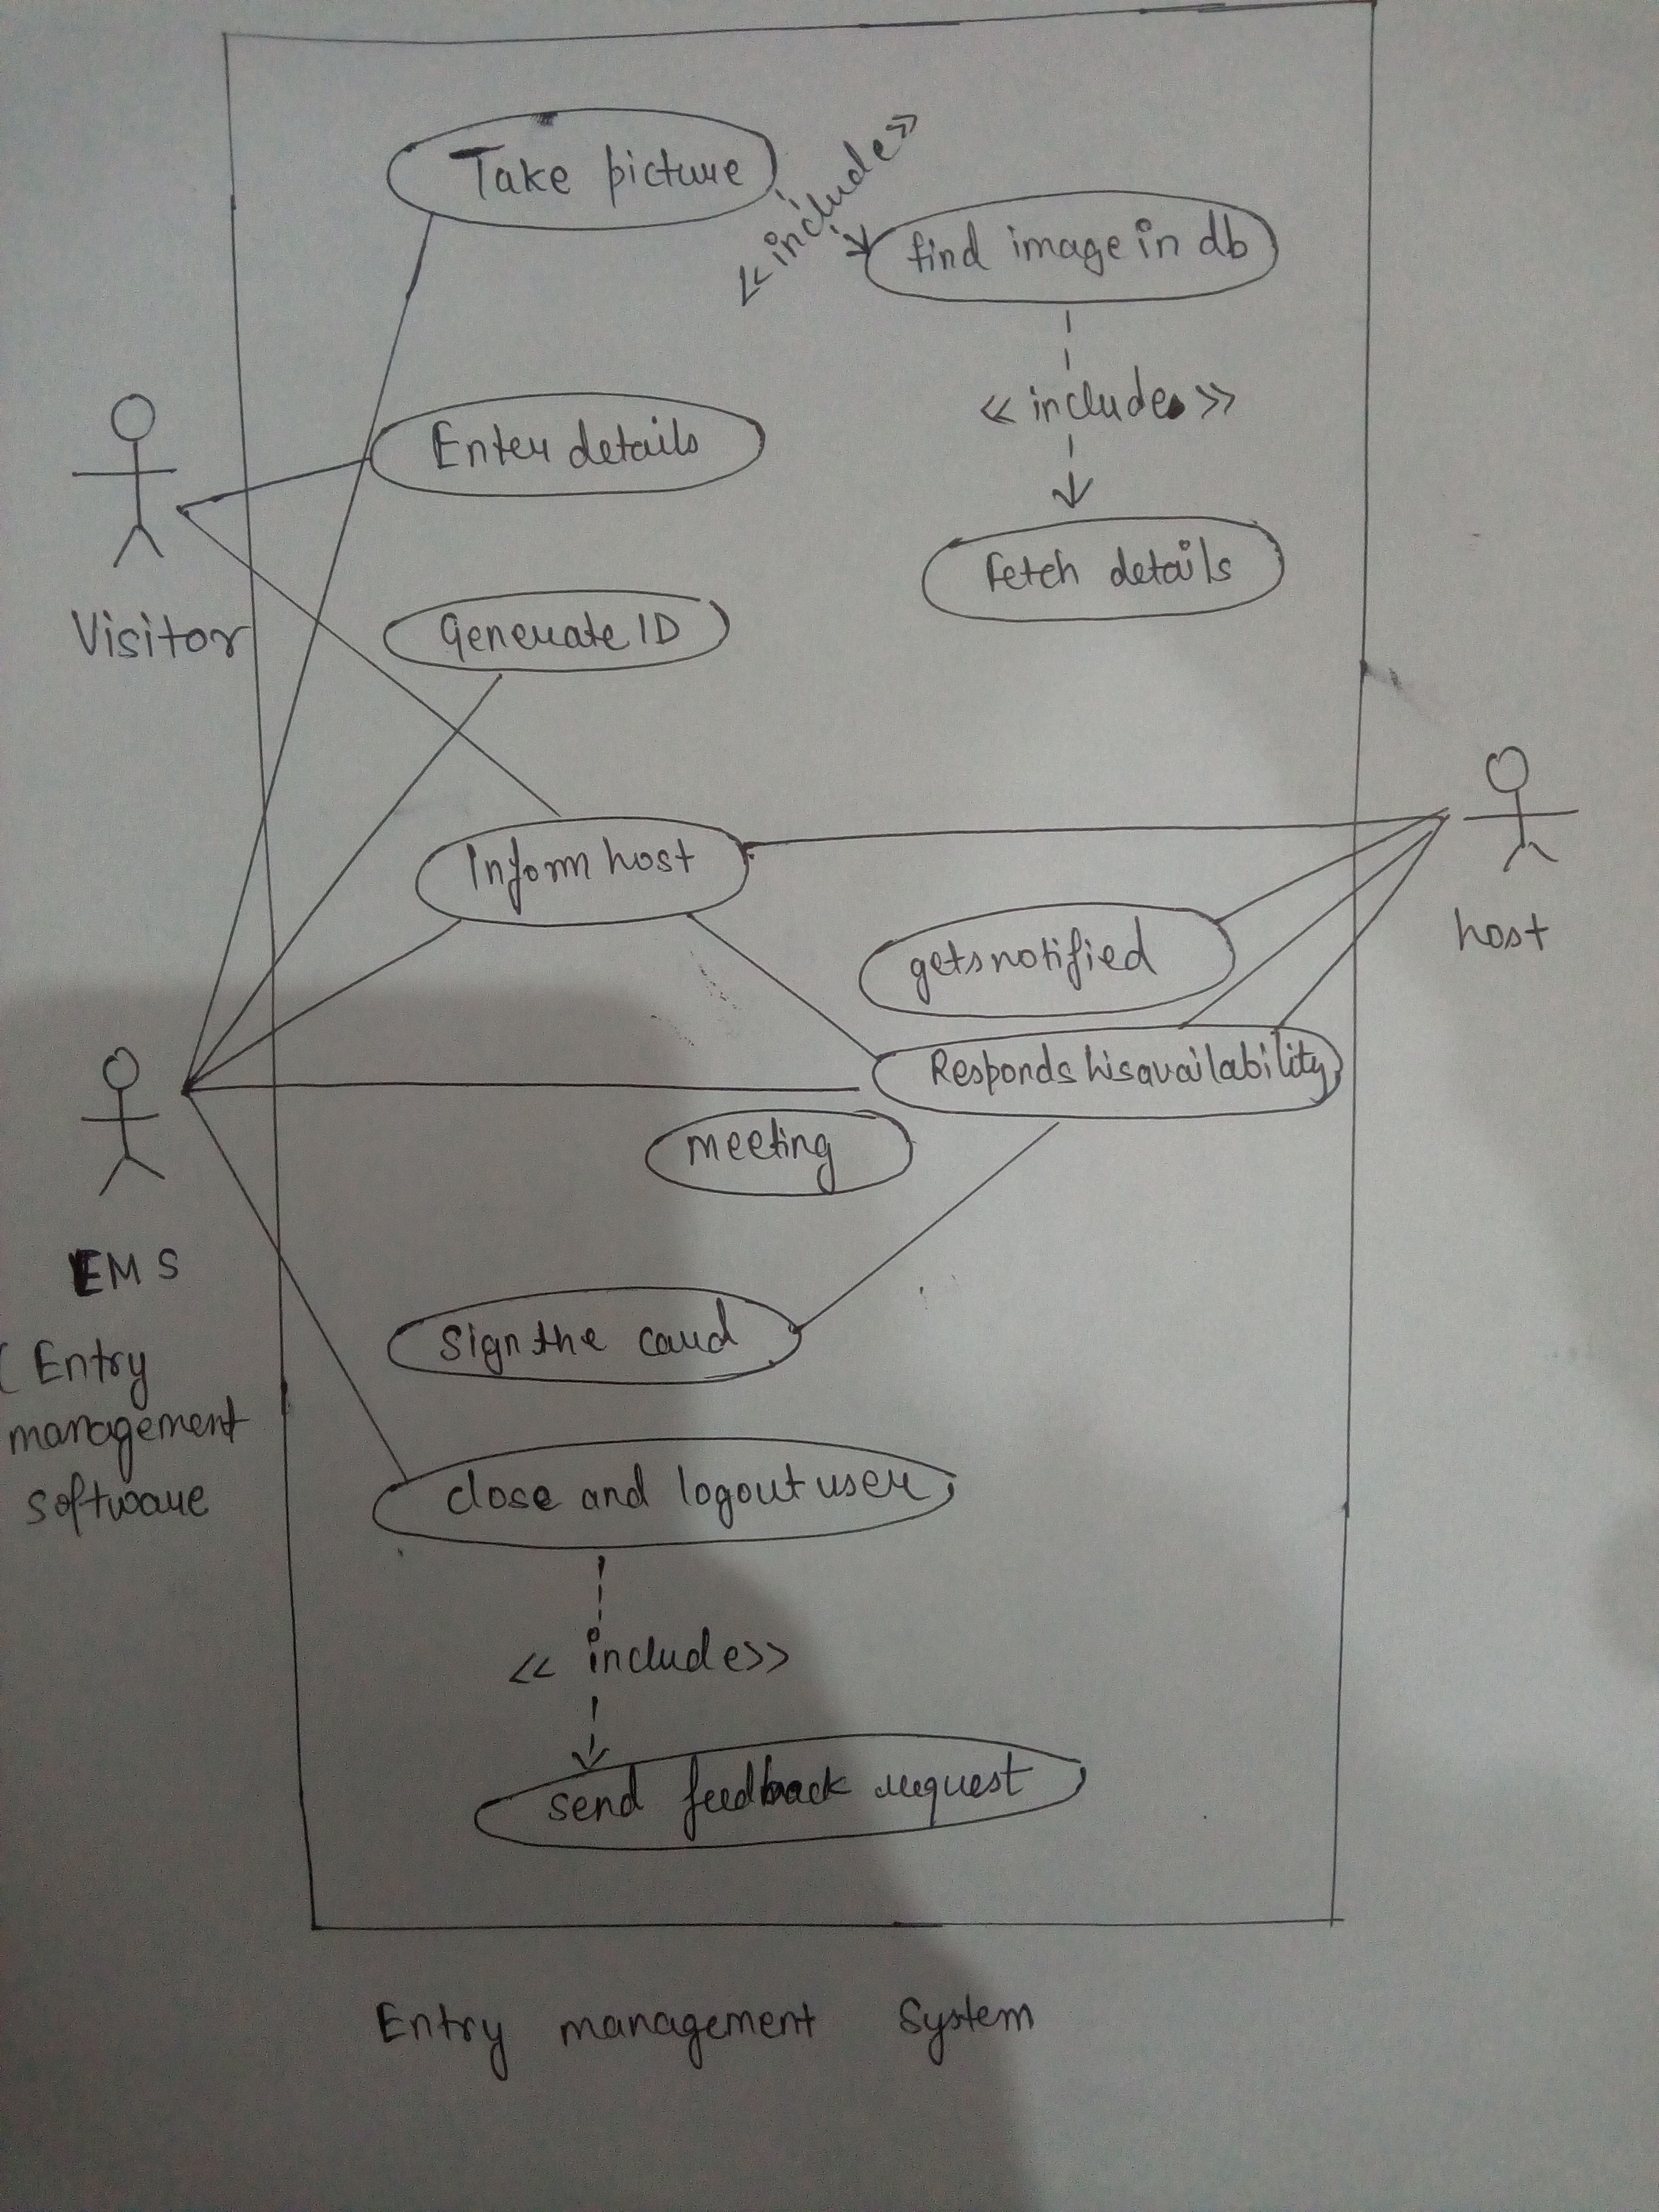 Take picture
<<include>>
find image in db
<<include>>
Enter details
Fetch details
Visitor
Generate ID
Inform host
host
gets notified
Responds his availability
meeting
EMS
(Entry
management
software
Sign the card
close and logout user
<<include>>
send feedback request
Entry management System